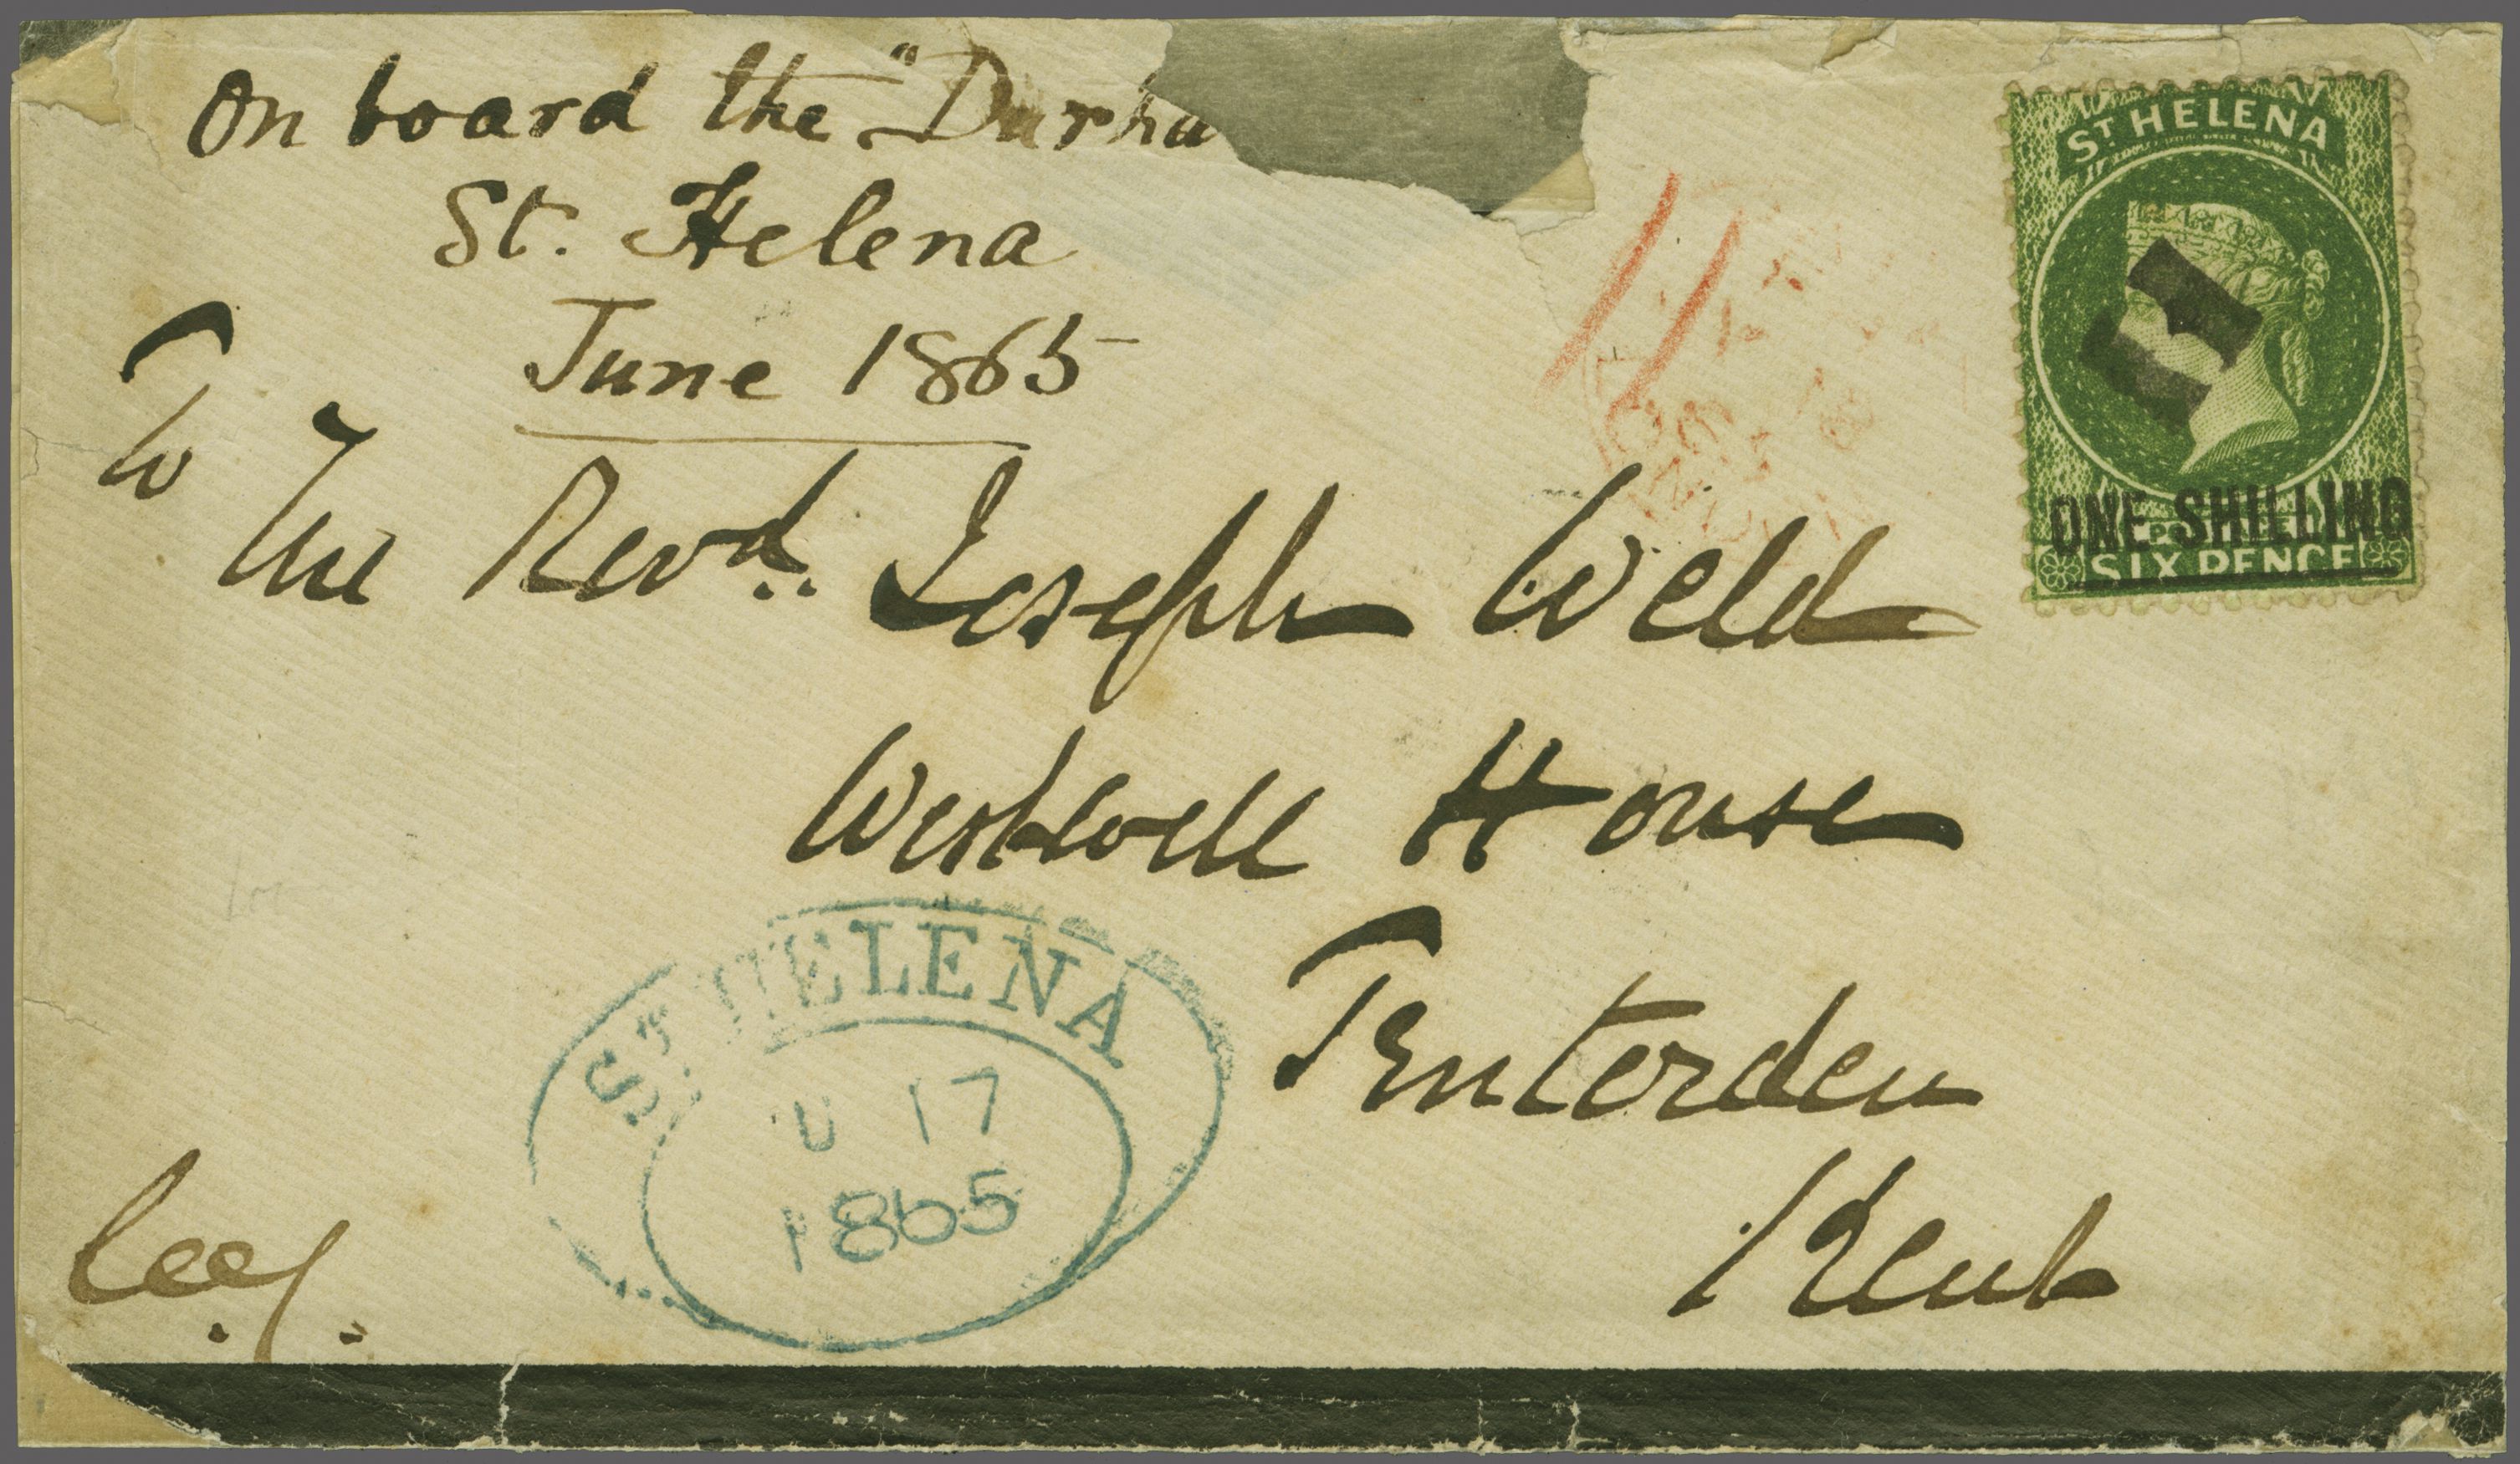 On board the "Durha
St. Helena
June 1865
To
The Revd. Joseph Weld
Westwell House
Tenterden
Kent
ST HELENA
ONE SHILLING
SIX PENCE
ST HELENA
U 17
1865